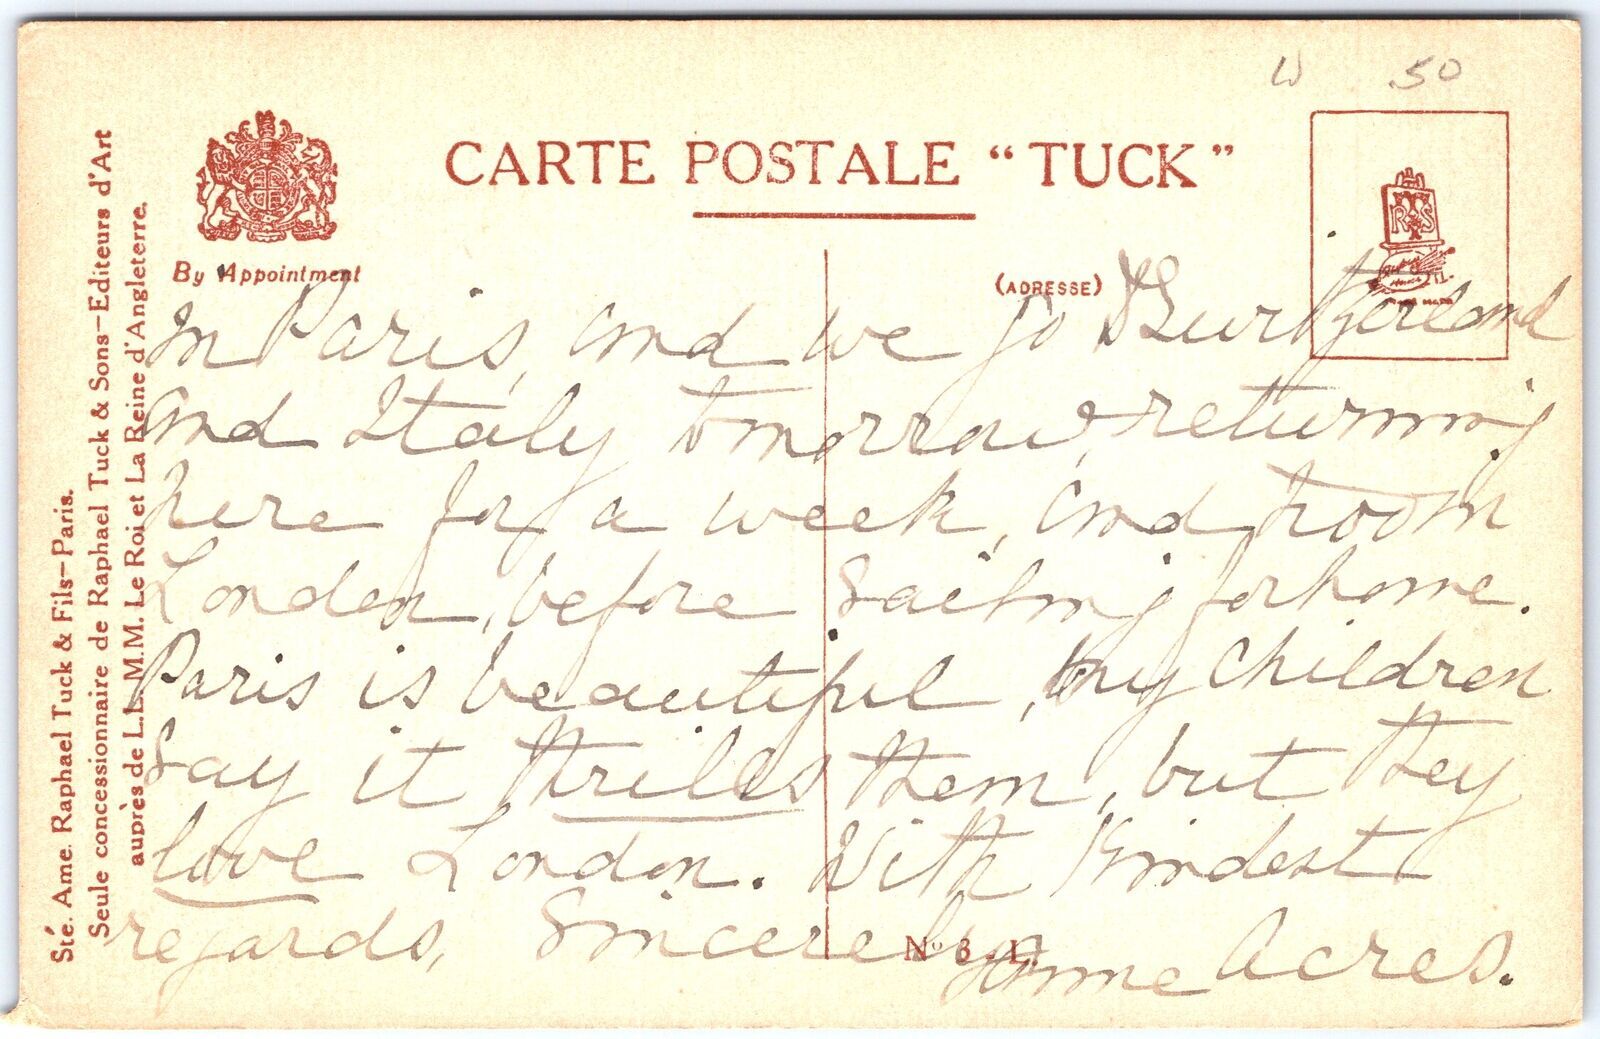 W 50
CARTE POSTALE “TUCK”
By Appointment
(ADRESSE)
R S
Sté. Ame. Raphael Tuck & Fils–Paris.
Seule concessionaire de Raphael Tuck & Sons–Editeurs d'Art
auprès de L.L. M.M. Le Roi et La Reine d'Angleterre.
In Paris, and we go Switzerland
and Italy tomorrow, returning
here for a week, and
London, before sailing for home.
Paris is beautiful, my children
say it thrills them, but they
love London. With kindest
regards, Sincerely
Acres.
No 3. L.